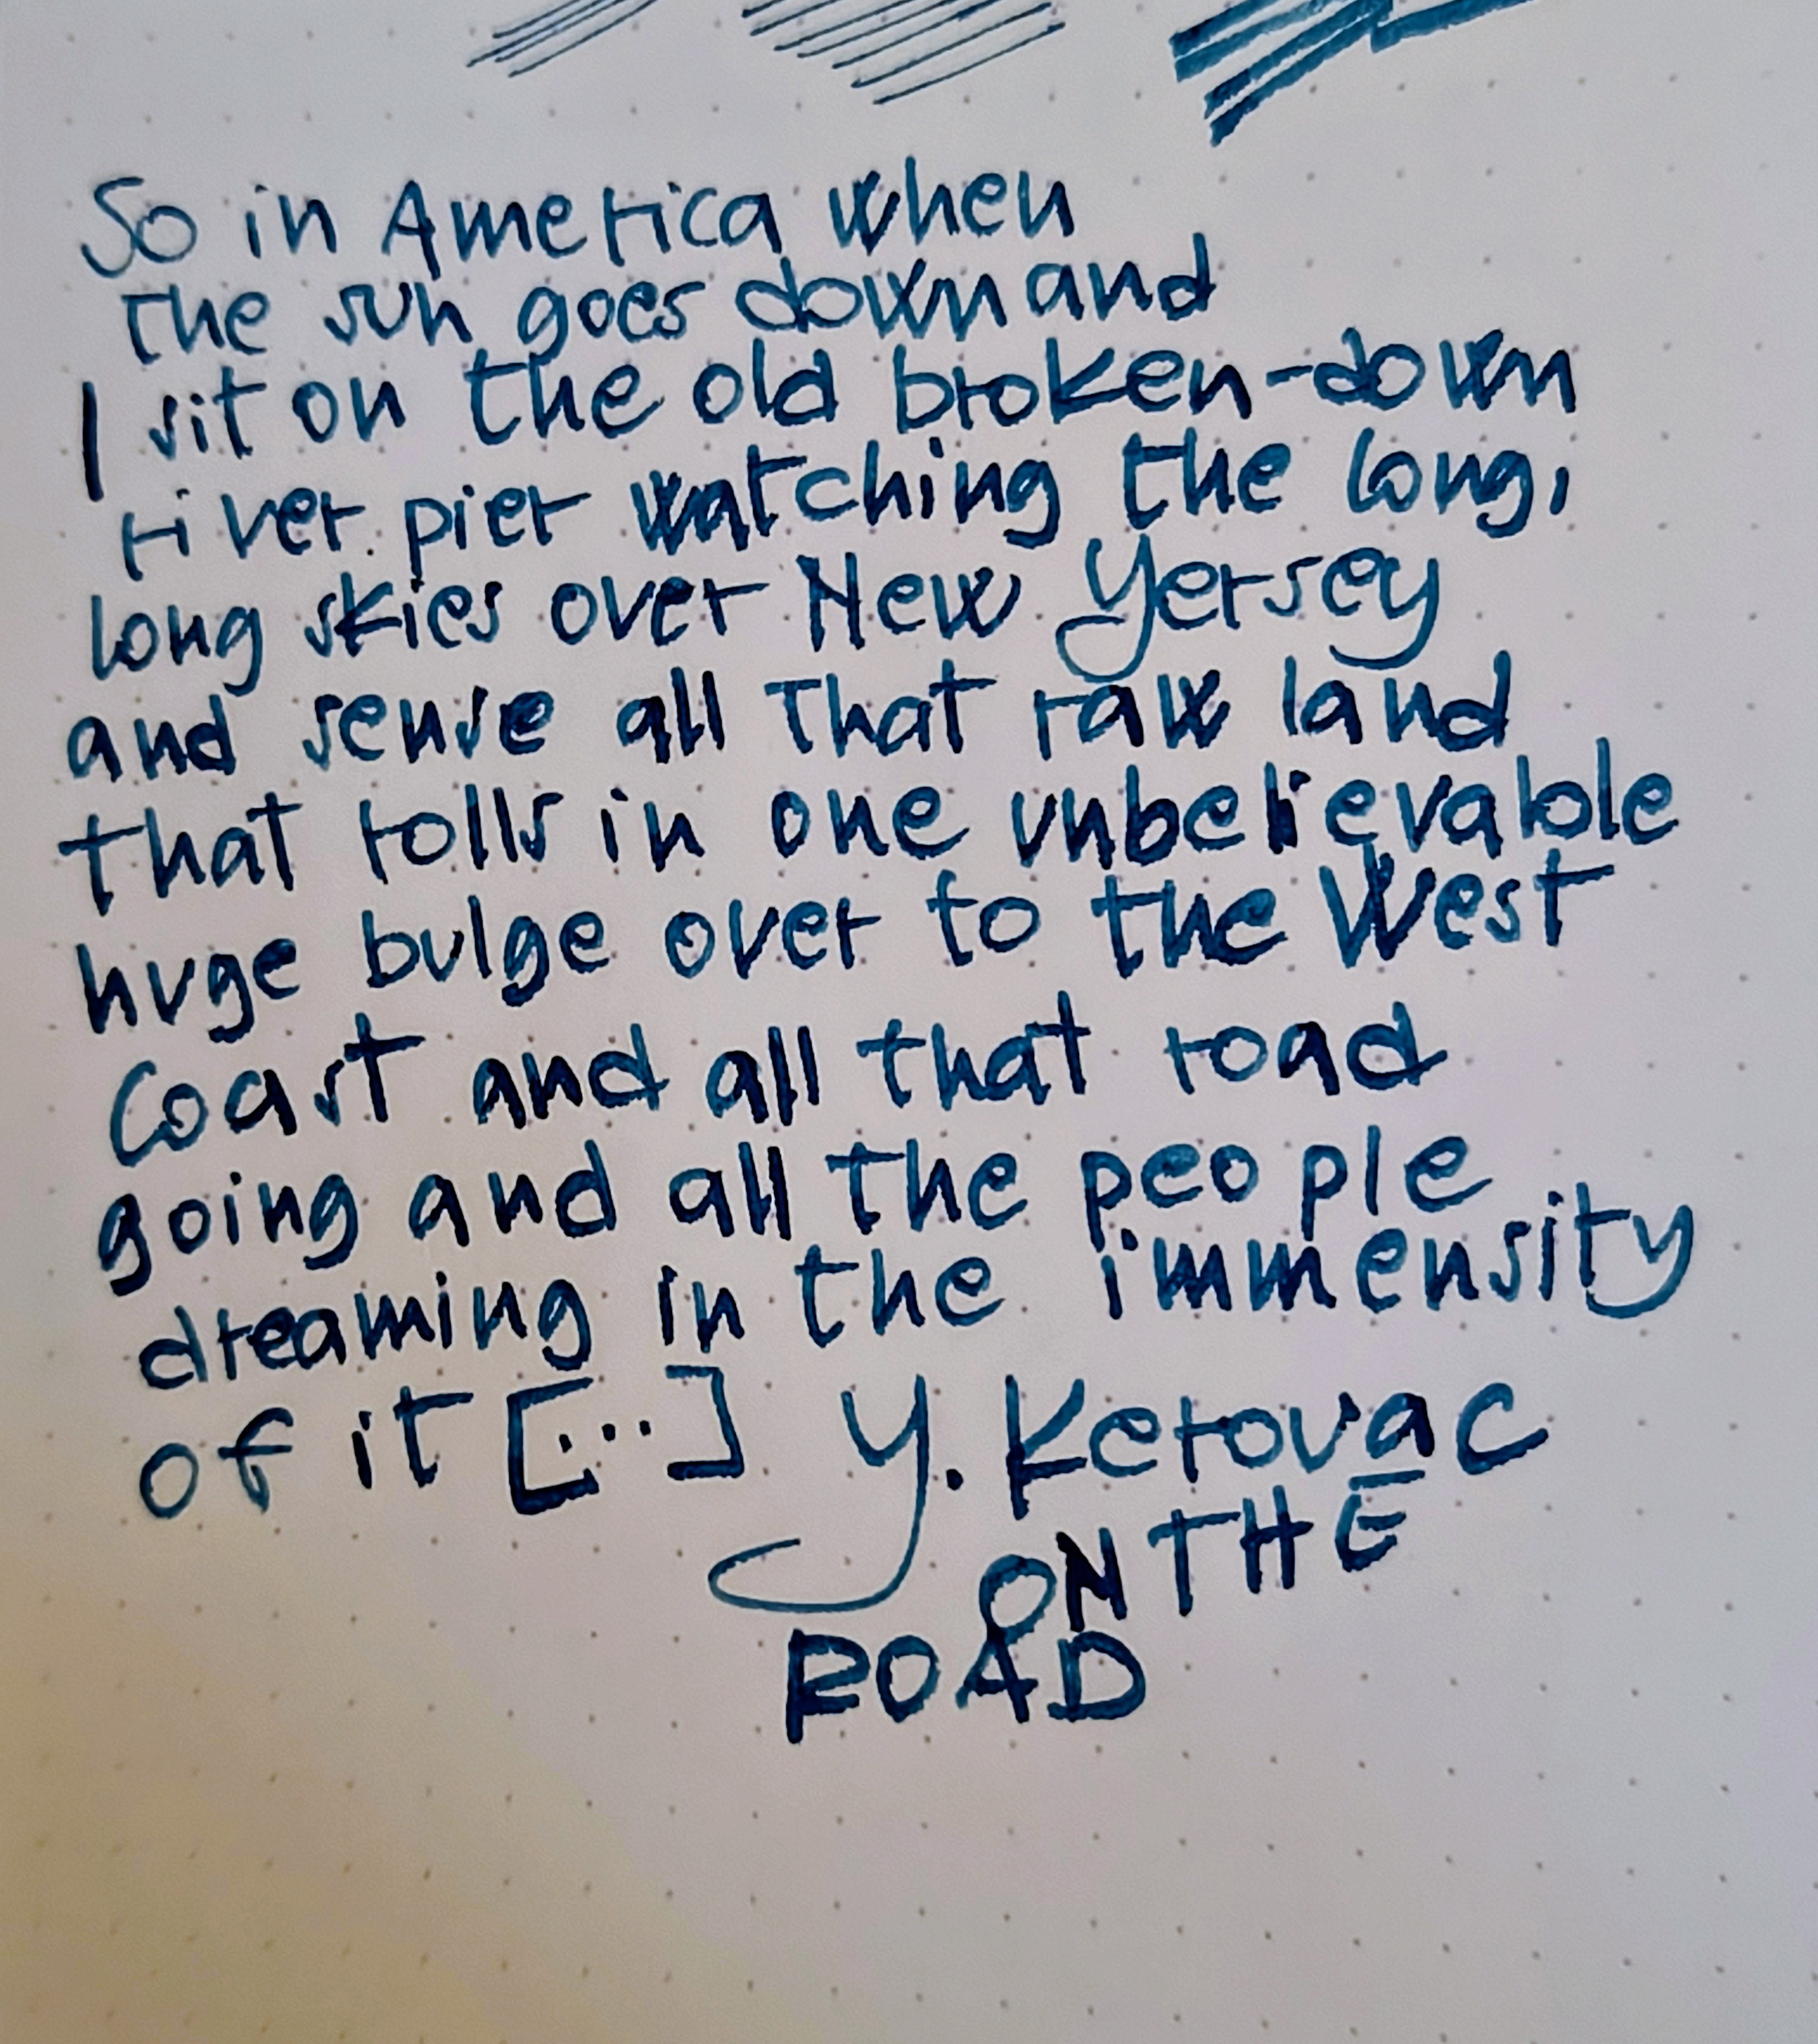 So in America when
the sun goes down and
I sit on the old broken-down
river pier watching the long,
long skies over New Yersey
and sense all that raw land
that rolls in one unbelievable
huge bulge over to the West
Coast and all that road
going and all the people
dreaming in the immensity
of it [...] Y. Kerouac
ON THE
ROAD